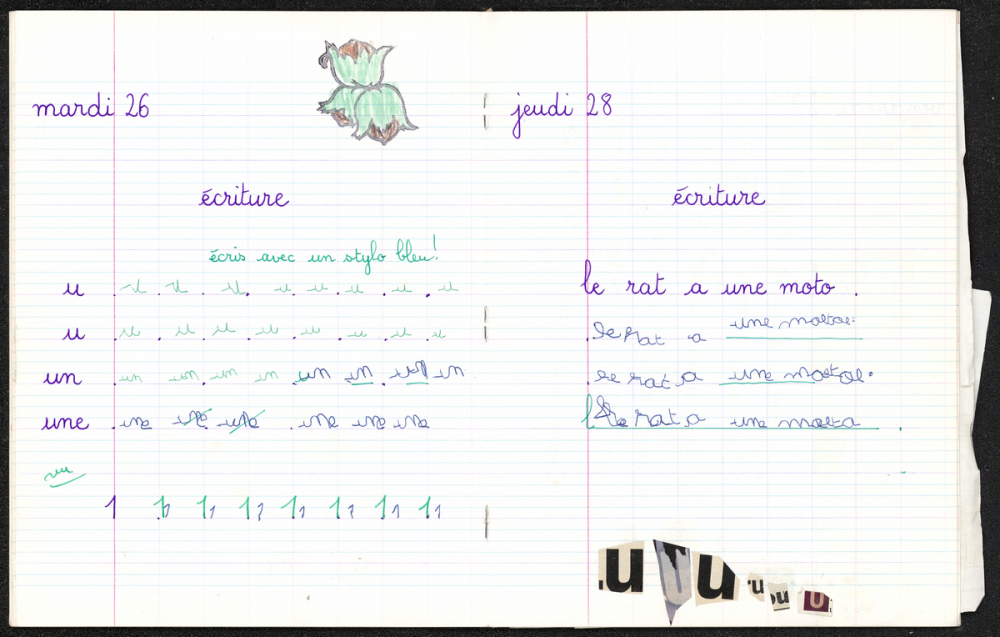 mardi 26
écriture
écris avec un stylo bleu!
u u u u u u u u u
u u u u u u u u u
un un un un un un un un un
une une une une une une une une
vu
1 1 1 1 1 1 1 1 1 1 1 1 1 1 1
jeudi 28
écriture
le rat a une moto .
le rat a une motoe.
le rat a une motoe.
le rat a une moto .
u U u u ou U